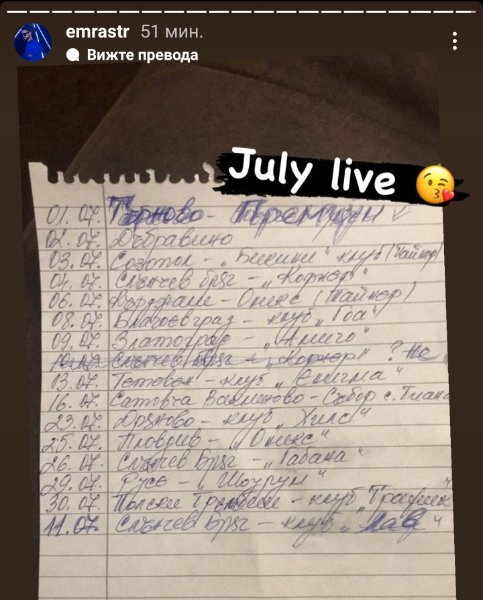 emrastr 51 мин.
Вижте превода
July live 😘
01.07. Търново -
02.07. Дъбравино
03.07. Созопол - „Бикини" клуб
04.07. Слънчев бряг - „Корнер"
06.07. Кърджали - Оникс (Тайнер)
08.07. Благоевград - клуб „Гоа"
09.07. Златоград - „Амиго"
10.07. Слънчев бряг - „Корнер" ? Не
13.07. Тетевен - клуб „Енигма"
16.07. Сатовча - Събор с.
23.07. Дряново - клуб „Хилс"
25.07. Пловдив - „Оникс"
26.07. Слънчев Бряг - „Кабана"
29.07. Русе - „Шоурум"
30.07. Полски Тръмбеш - клуб
11.07. Слънчев Бряг - клуб „Лав"